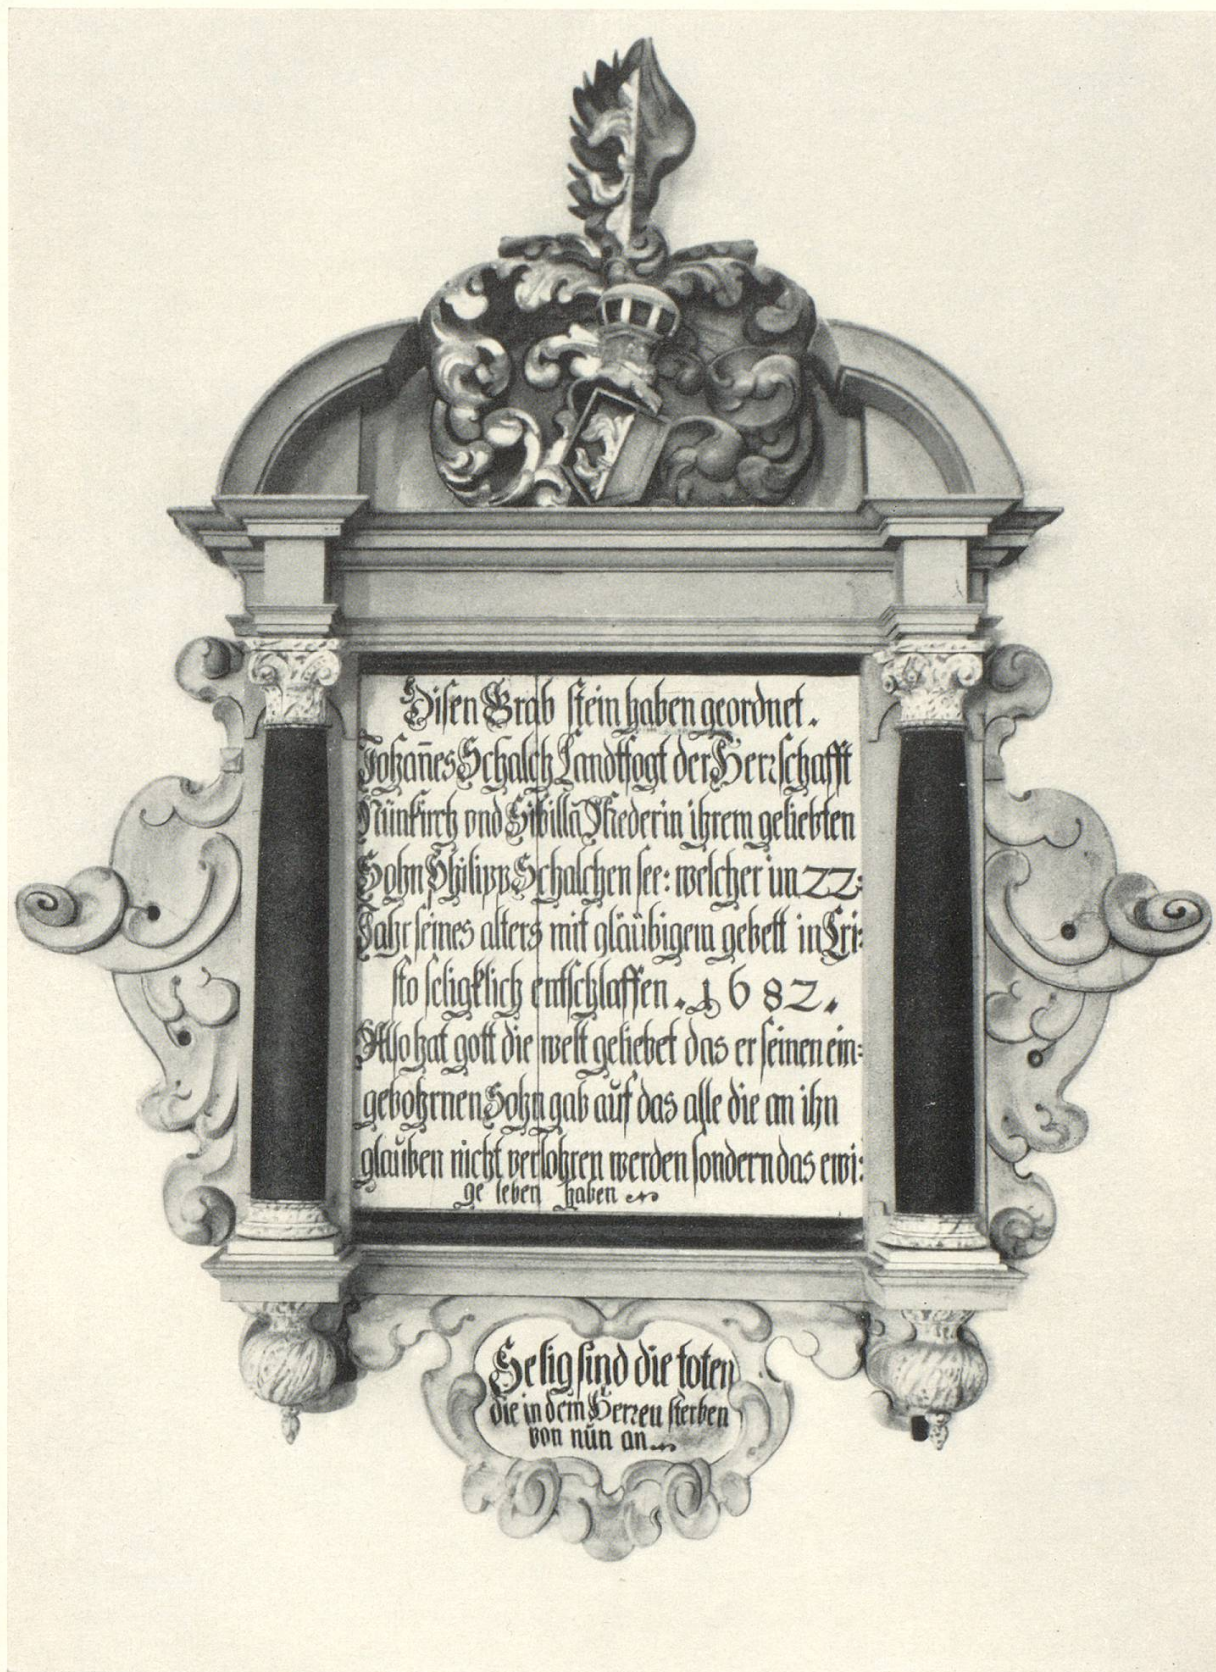 Disen Grab stein haben geordnet.
Johan̄es Schalch Landtfogt der Herrschafft
Nünkirch vnd Sibilla Miederin ihrem geliebten
Sohn Philipp Schalchen see: welcher im 22:
Jahr seines alters mit gläübigem gebett in Cri:
sto seligklich entschlaffen. 1682.
Also hat gott die welt geliebet das er seinen ein:
gebohrnen Sohn gab auf das alle die an ihn
glauben nicht verlohren werden sondern das ewi:
ge leben haben
Selig sind die toten
die in dem Herren sterben
von nŭn an